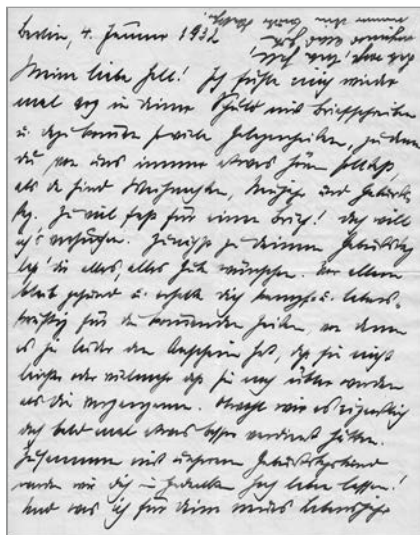 Berlin, 4. Januar 1932
Meine liebe Hell! Ich fühle mich wieder
mal arg in deiner Schuld mit Briefschreiben
u. dazu kommen so viele Gelegenheiten, zu denen
du von uns immer etwas hören solltest,
als da sind Weihnachten, Neujahr und Geburts-
tag. Zu viel fast für einen Brief! Doch will
ich's versuchen. Zunächst zu deinem Geburtstag
laß' dir alles, alles Gute wünschen. Vor allem
bleib gesund u. erhalte dich kampf- u. lebens-
kräftig für die kommenden Zeiten, von denen
es ja leider den Anschein hat, daß sie nicht
leichter oder vielmehr daß sie noch übler werden
als die vergangenen. Obwohl wir es eigentlich
doch bald mal etwas besser verdient hätten.
Zusammen mit unserem Geburtstagskind
werden wir dich in Gedanken hoch leben lassen!
Und was ich für dein neues Lebensjahr